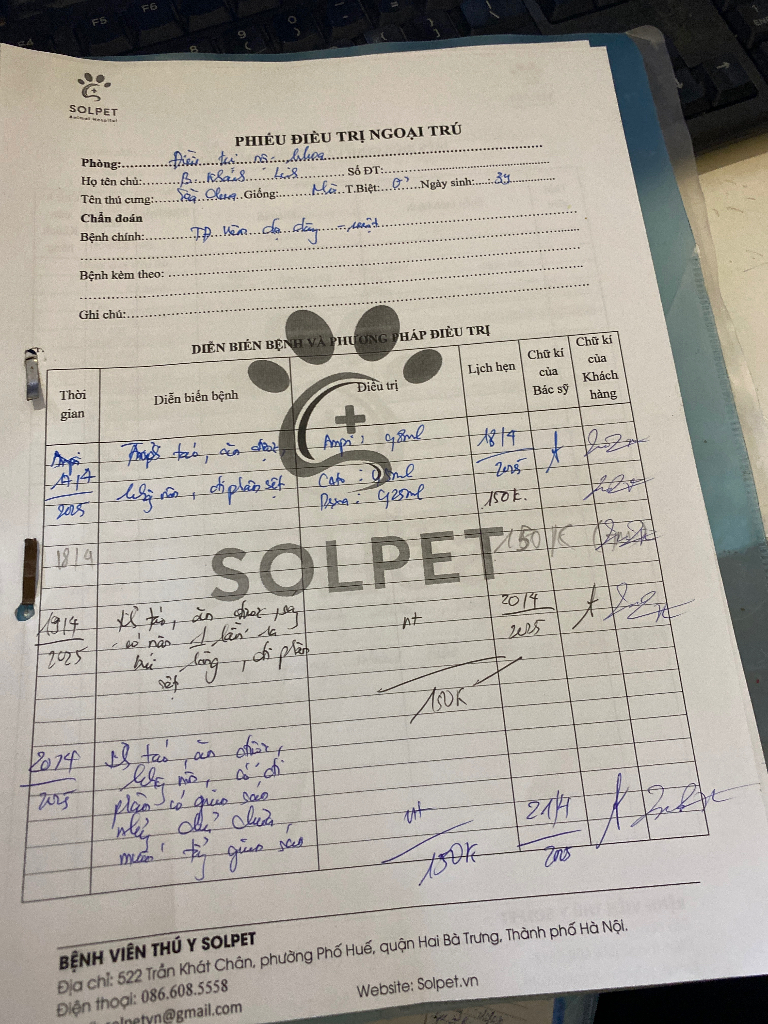 SOLPET
Animal Hospital
PHIẾU ĐIỀU TRỊ NGOẠI TRÚ
Phòng: Điều trị nội khoa
Họ tên chủ: B. Khánh Số ĐT:
Tên thú cưng: Giống: Mèo T.Biệt: Ngày sinh: 3y
Chẩn đoán
Bệnh chính: TD viêm dạ dày - ruột
Bệnh kèm theo:
Ghi chú:
DIỄN BIẾN BỆNH VÀ PHƯƠNG PHÁP ĐIỀU TRỊ
Thời gian
Diễn biến bệnh
Điều trị
Lịch hẹn
Chữ kí của Bác sỹ
Chữ kí của Khách hàng
17/4
2025
táo, ăn được,
không nôn, đi phân sệt
Ampi: 0,8ml
Cato: 0,8ml
Dexa: 0,25ml
18/4
2025
150K.
18/4
150K
SOLPET
19/4
2025
táo, ăn được,
có nôn 1 lần ra
búi lông, đi phân
sệt
nt
20/4
2025
150K
20/4
2025
táo, ăn được,
không nôn, có đi
phân có giun sáo
nhưng chủ chưa
muốn tẩy giun sáo
nt
150K
21/4
2025
BỆNH VIỆN THÚ Y SOLPET
Địa chỉ: 522 Trần Khát Chân, phường Phố Huế, quận Hai Bà Trưng, Thành phố Hà Nội.
Điện thoại: 086.608.5558
Website: Solpet.vn
solpetvn@gmail.com